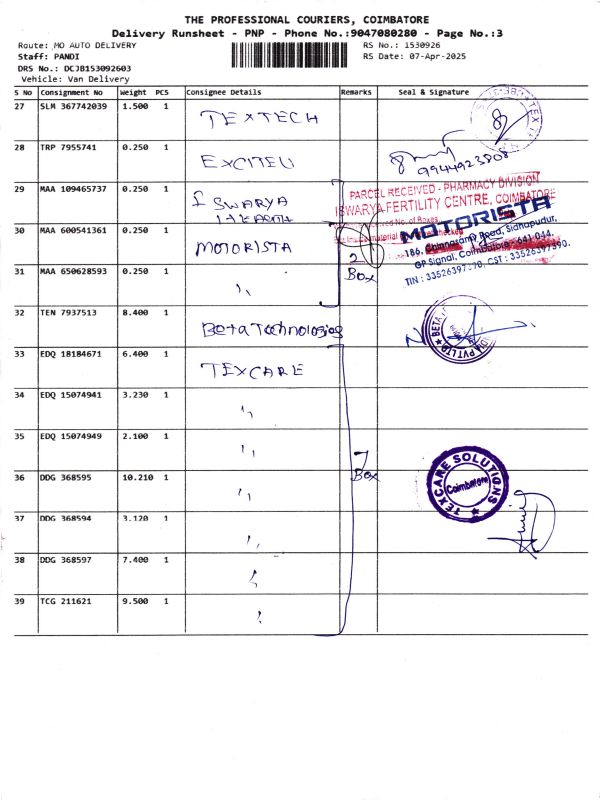 THE PROFESSIONAL COURIERS, COIMBATORE
Delivery Runsheet - PNP - Phone No.:9047080280 - Page No.:3
Route: MO AUTO DELIVERY
RS No.: 1530926
Staff: PANDI
RS Date: 07-Apr-2025
DRS No.: DCJB153092603
Vehicle: Van Delivery
S No Consignment No Weight PCS Consignee Details Remarks Seal & Signature
27 SLM 367742039 1.500 1 TEXTECH
28 TRP 7955741 0.250 1 EXCITEU 9944923808
29 MAA 109465737 0.250 1 ISWARYA
HEALTH
PARCEL RECEIVED - PHARMACY DIVISION
ISWARYA FERTILITY CENTRE, COIMBATORE
No. of Boxes
30 MAA 600541361 0.250 1 MOTORISTA 2
MOTORISTA
186, Chinnasamy Road, Sidhapudur,
GP Signal, Coimbatore - 641 044.
31 MAA 650628593 0.250 1 ,, Box
32 TEN 7937513 8.400 1 Beta Technologies
BETA
INDIA PVT LTD
33 EDQ 18184671 6.400 1 TEXCARE
34 EDQ 15074941 3.230 1 ,,
35 EDQ 15074949 2.100 1 ,, 7
36 DDG 368595 10.210 1 ,, Box
TEXCARE SOLUTIONS
Coimbatore
37 DDG 368594 3.120 1 ,,
38 DDG 368597 7.400 1 ,,
39 TCG 211621 9.500 1 ,,